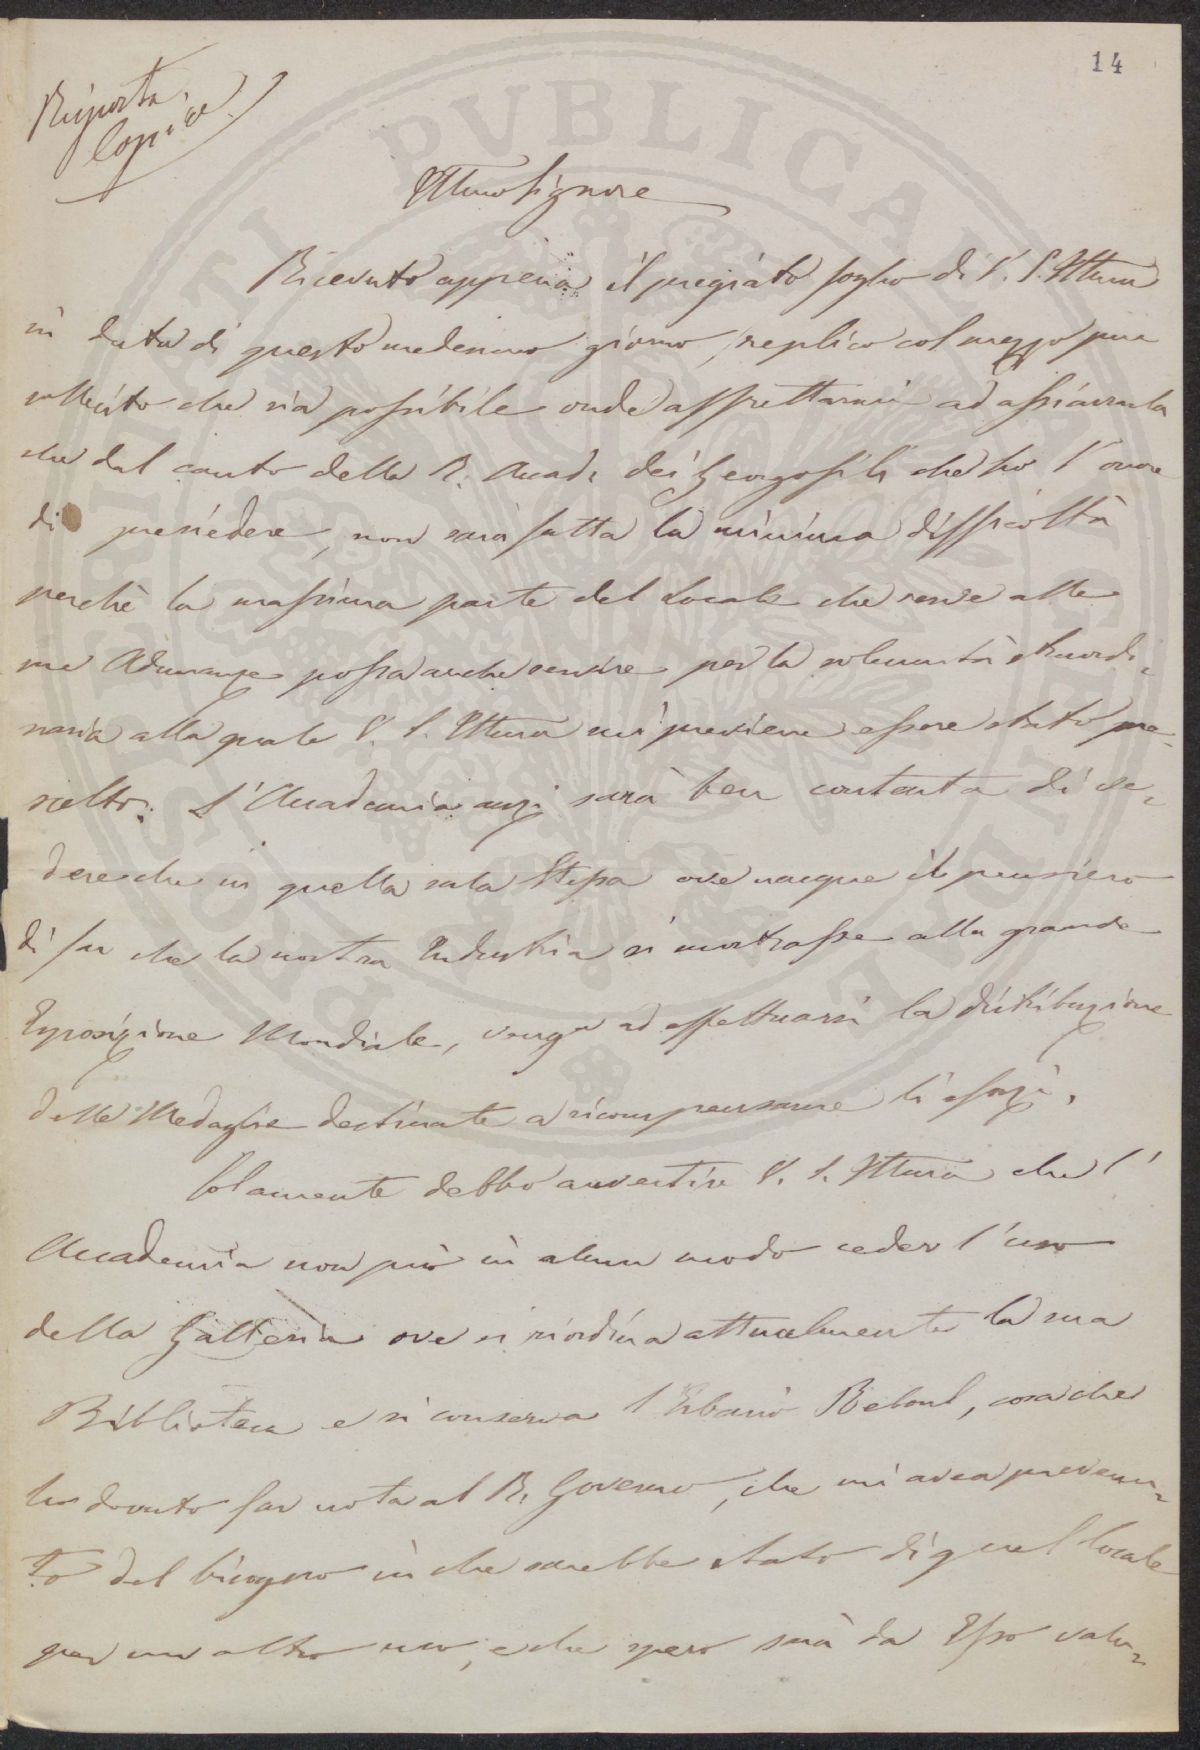 14
Risposta.
Copia
Illmo Signore
Ricevuto appena il pregiato foglio di V. S. Illma
in data di questo medesimo giorno, replico col mezzo più
sollecito che sia possibile onde affrettarmi ad assicurarla
che dal canto della R. Accad. dei Georgofili che ho l'onore
di presiedere, non sarà fatta la minima difficoltà
perchè la massima parte del Locale che serve alle
sue Adunanze possa anche servire per la solennità straordi=
naria alla quale V. S. Illma mi previene essere stato pre=
scelto. L'Accademia anzi sarà ben contenta di ve=
dere che in quella sala stessa ove nacque il pensiero
di far che la nostra Industria si mostrasse alla grande
Esposizione Mondiale, venga ad effettuarsi la distribuzione
delle Medaglie destinate a ricompensarne li sforzi.
Solamente debbo avvertire V. S. Illma che l'
Accademia non può in alcun modo ceder l'uso
della Galleria ove si riordina attualmente la sua
Biblioteca e si conserva l'Erbario Reboul, cosa che
ho dovuto far nota al R. Governo, che mi avea prevenu=
to del bisogno in che sarebbe stato di quel locale
per un altro uso, e che spero sarà da Esso valu=
PUBLICAE